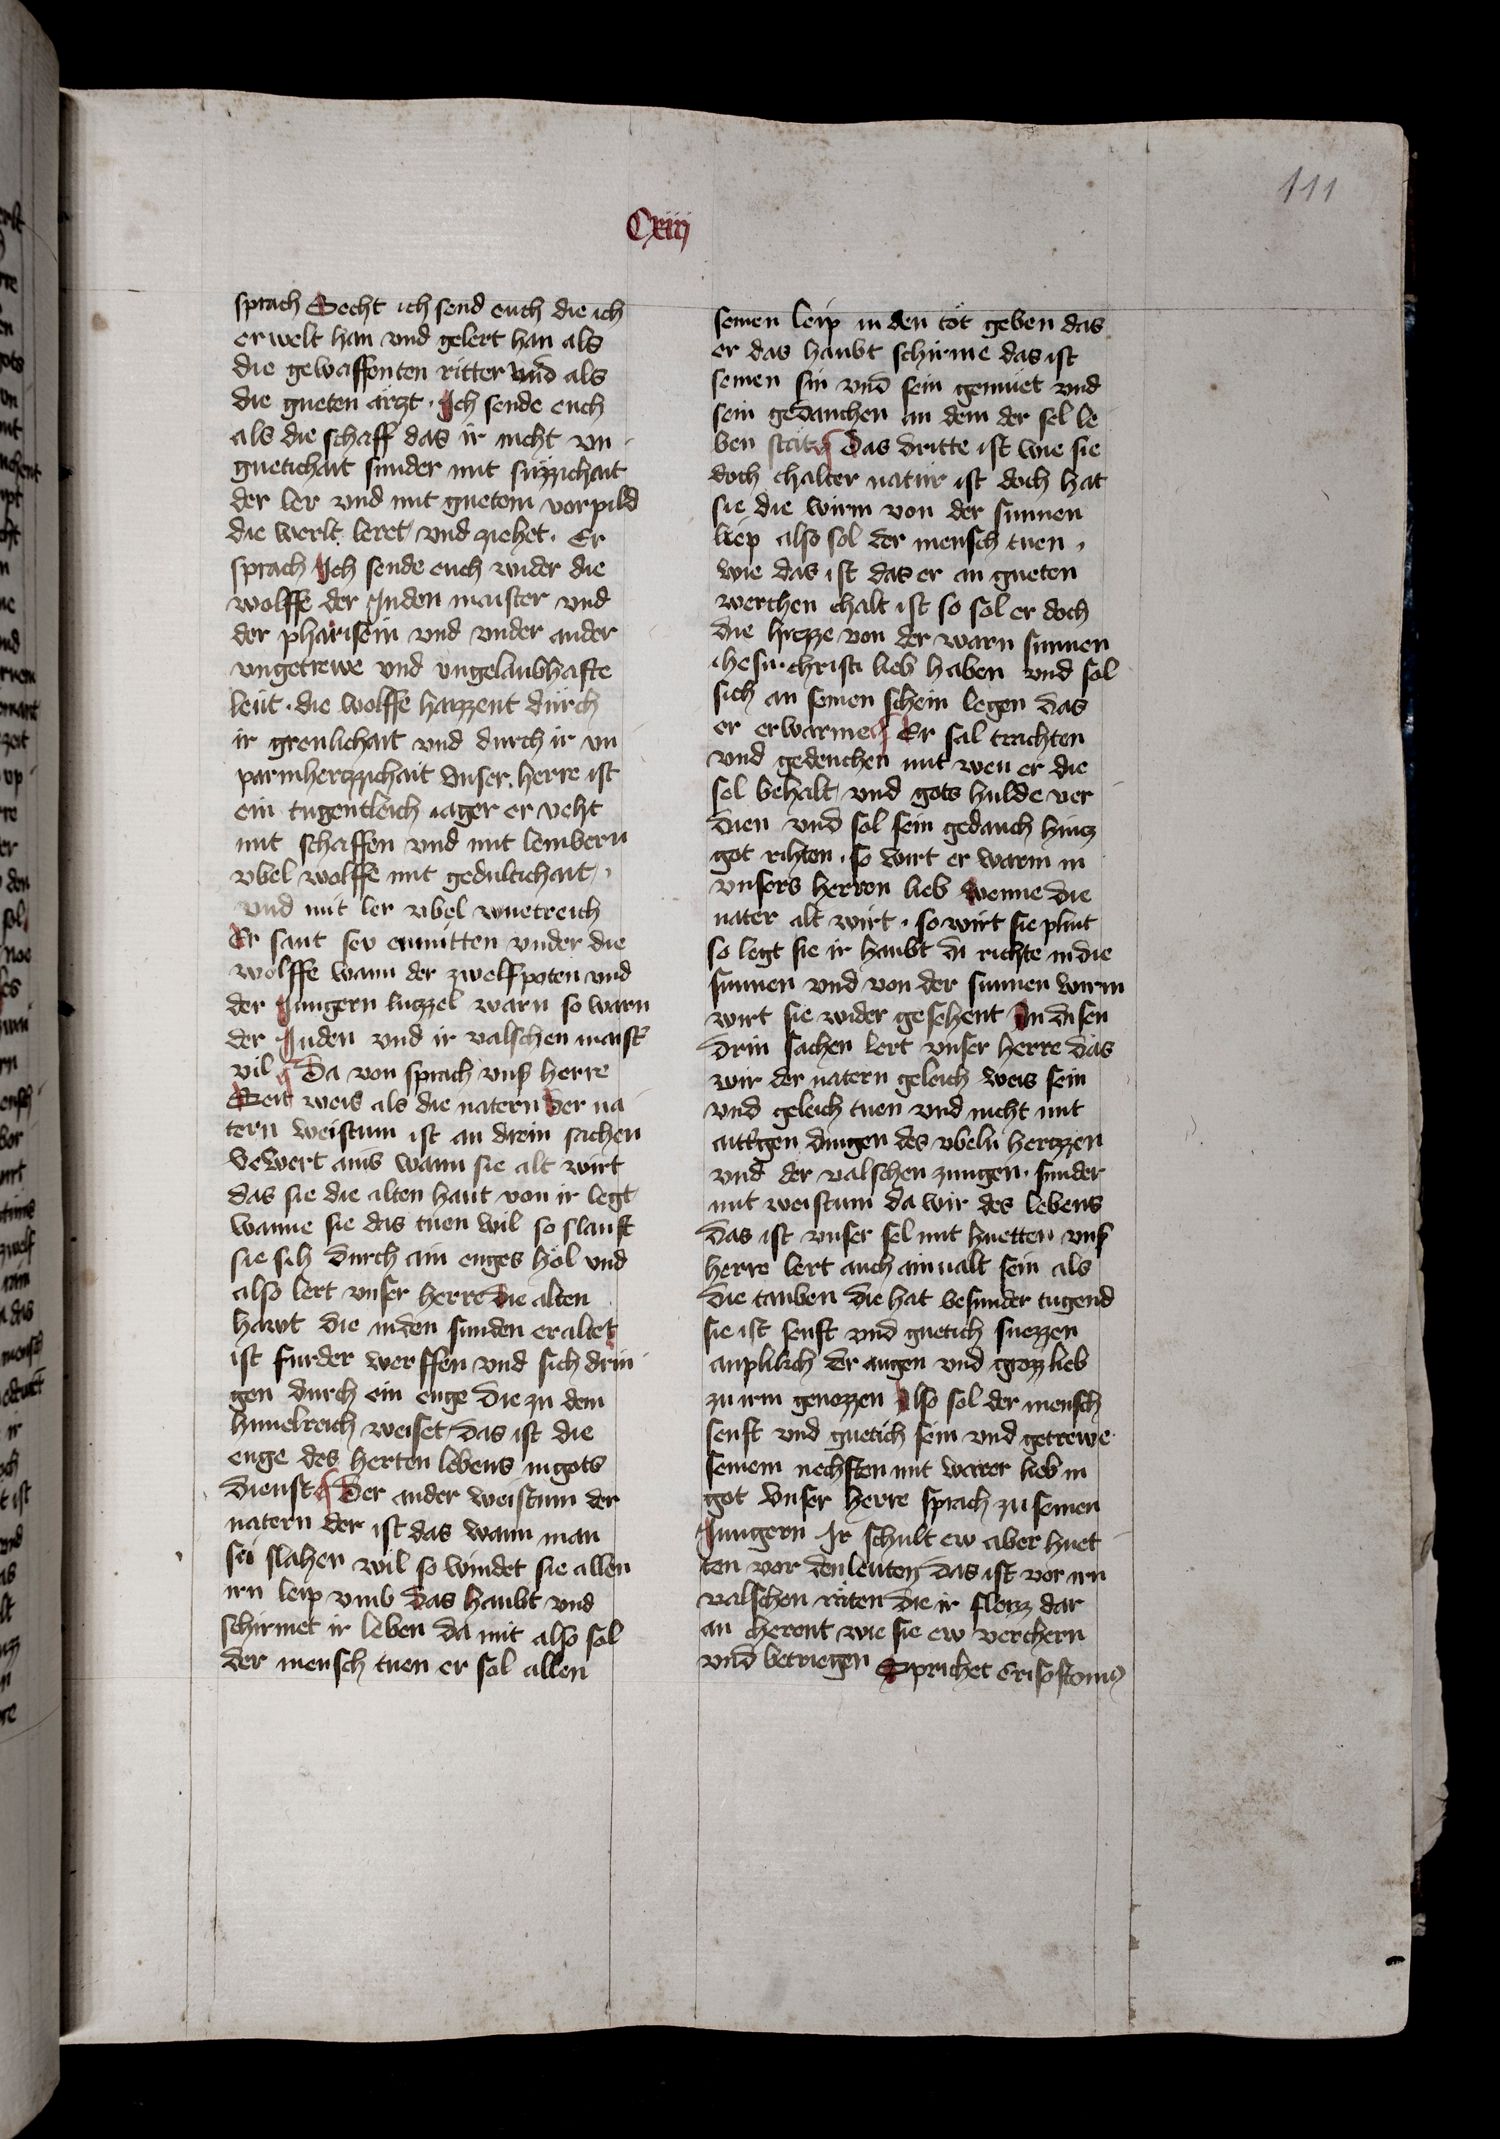 111
Cxiij
sprach Secht ich send euch die ich
erwelt han vnd gelert han als
die gewaffenten ritter vnd als
die gueten ärtzt · Ich sende euch
als die schaff das ir nicht vn
guetichait sunder mit süzzichait
der ler vnd mit guetem vorpild
die werlt leret vnd ziehet · Er
sprach Ich sende euch vnder die
wolffe der Juden maister vnd
der pharisein vnd vnder ander
vngetrewe vnd vngelaubhafte
leüt · die wolffe hazzent durch
ir greulichait vnd durch ir vn
parmhertzichait vnser herre ist
ein tugentleich iager er veht
mit schaffen vnd mit lembern
vbel wolffe mit gedultichait ·
vnd mit ler vbel wuetreich
Er sant sey enmitten vnder die
wolffe wann der zwelfpoten vnd
der Jungern lutzzel warn so warn
der Juden vnd ir valschen maist
vil Da von sprach vns herre
Seit weis als die natern der na
tern weistum ist an drein sachen
bewert ains wann sie alt wirt
das sie die alten haut von ir legt
wanne sie das tuen wil so slauft
sie sich durch ain enges hol vnd
also lert vnser herre die alten
hawt die in den sunden eraltet
ist furder werffen vnd sich drin
gen durch ein enge die zu dem
himelreich weiset das ist die
enge des herten lebens in gots
dienst Der ander weistum der
natern der ist das wann man
sei slahen wil so windet sie allen
irn leip vmb das haubt vnd
schirmet ir leben da mit also sol
der mensch tuen er sol allen
seinen leip in den tot geben das
er das haubt schirme das ist
seinen sin vnd sein gemuet vnd
sein gedanchen an dem der sel le
ben stat Das dritte ist wie sie
doch chalter natur ist doch hat
sie die wirm von der sunnen
liep also sol der mensch tuen ·
wie das ist das er an gueten
werchen chalt ist so sol er doch
die hitzze von der warn sunnen
ihesu christi lieb haben vnd sol
sich an seinen schein legen das
er erwarme Er sal trachten
vnd gedenchen mit weu er die
sel behalt vnd gots hulde ver
dien vnd sol sein gedanch hintz
got rihten · so wirt er warm in
vnsers herren lieb wenne die
nater alt wirt · so wirt sie plint
so legt sie ir haubt di richte in die
sunnen vnd von der sunnen wirm
wirt sie wider gesehent In disen
drin sachen lert vnser herre das
wir der natern geleich weis sein
vnd geleich tuen vnd nicht mit
dingen des vbeln hertzzen
vnd der valschen zungen · sunder
mit weistum da wir des lebens
das ist vnser sel mit huetten vns
herre lert auch ainualt sein als
die tauben die hat besunder tugend
sie ist senft vnd guetich suezzen
anplikch der augen vnd grozz lieb
zu irm genozzen Also sol der mensch
senft vnd guetich sein vnd getrewe
seinem nechsten mit warer lieb in
got Vnser herre sprach zu seinen
Jungern Ir schult ew aber huet
ten vor den leuten das ist vor irn
valschen räten die ir fleizz dar
an cherent wie sie ew verchern
vnd betriegen Sprichet Crisostomus